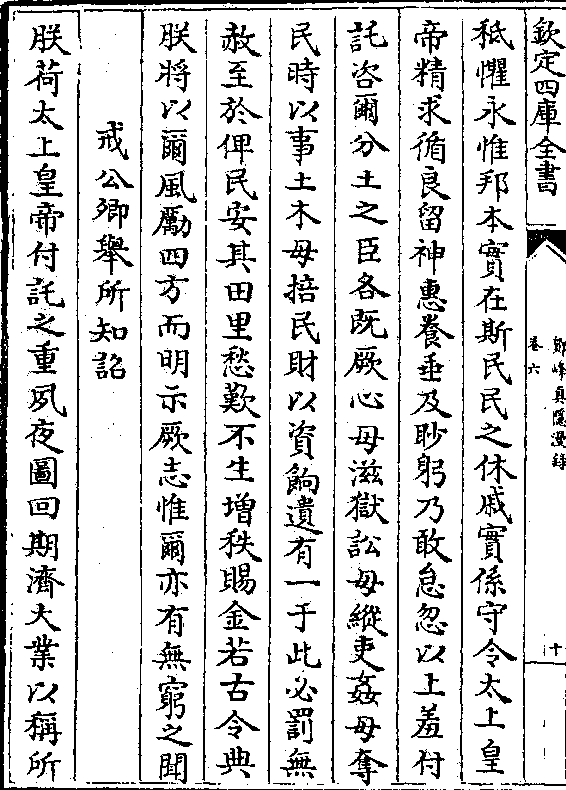 欽定四庫全書
鄮峰真隱漫錄
卷六
十
秪懼永惟邦本實在斯民民之休戚實係守令太上皇
帝精求循良留神惠養垂及眇躬乃敢怠忽以上羞付
託咨爾分土之臣各既厥心毋滋獄訟毋縱吏姦毋奪
民時以事土木毋掊民財以資餉遺有一于此必罰無
赦至於俾民安其田里愁歎不生增秩賜金若古令典
朕將以爾風勵四方而明示厥志惟爾亦有無窮之聞
戒公卿舉所知詔
朕荷太上皇帝付託之重夙夜圖回期濟大業以稱所